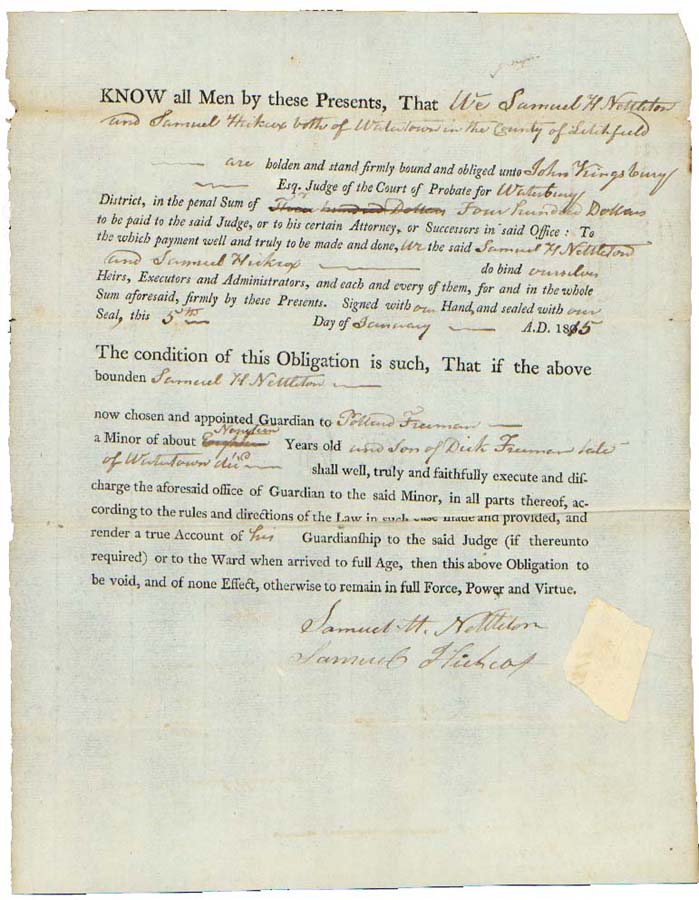 KNOW all Men by these Presents, That We Samuel H Nettleton
and Samuel Hickox both of Watertown in the County of Litchfield
are holden and stand firmly bound and obliged unto John Kingsbury
Esq. Judge of the Court of Probate for Waterbury
District, in the penal Sum of hundred Dollars Four hundred Dollars
to be paid to the said Judge, or to his certain Attorney, or Successors in said Office: To
the which payment well and truly to be made and done, We the said Samuel H Nettleton
and Samuel Hickox do bind ourselves
Heirs, Executors and Administrators, and each and every of them, for and in the whole
Sum aforesaid, firmly by these Presents. Signed with our Hand, and sealed with our
Seal, this 5th Day of January A.D. 1815
The condition of this Obligation is such, That if the above
bounden Samuel H Nettleton
now chosen and appointed Guardian to Freeman
a Minor of about Eighteen Years old and Son of Dick Freeman late
of Watertown decd shall well, truly and faithfully execute and dis-
charge the aforesaid office of Guardian to the said Minor, in all parts thereof, ac-
cording to the rules and directions of the Law in such case made and provided, and
render a true Account of his Guardianship to the said Judge (if thereunto
required) or to the Ward when arrived to full Age, then this above Obligation to
be void, and of none Effect, otherwise to remain in full Force, Power and Virtue.
Samuel H. Nettleton
Samuel Hickox